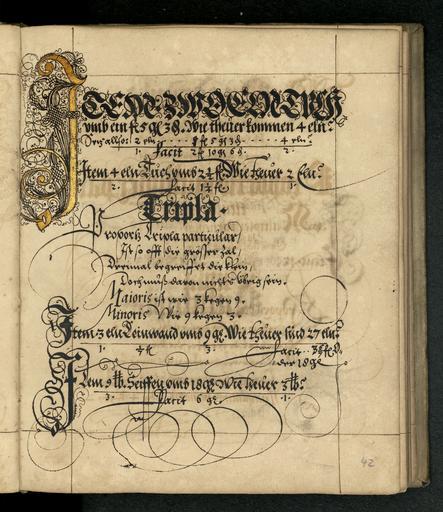 ITEM ZWO ELN TUCH
umb ein fl 5 gl 3 ₰. Wie theuer kommen 4 eln?
2 eln 1 fl 5 gl 3 ₰ 4 eln.
1. Facit 2 fl 10 gl 6 ₰. 2.
Item 4 eln Tuch umb 2½ fl. Wie theuer 2 eln?
2. Facit 1¼ fl 1.
Tripla.
Proportz Tripla particular/
Ist so offt die grösser zal,
Dreimal begreiffet die klein,
Doch muß davon nichts ubrig sein.
Maioris ist wie 3 kegen 9.
Minoris Wie 9 kegen 3.
Item 3 eln Leinwand umb 9 gl. Wie theuer sind 27 eln?
1. 3. Facit
oder 18 gl
Item 9 lb. Seiffen umb 18 gl. Wie theuer 3 lb?
3. Facit 6 gl. 1.
42